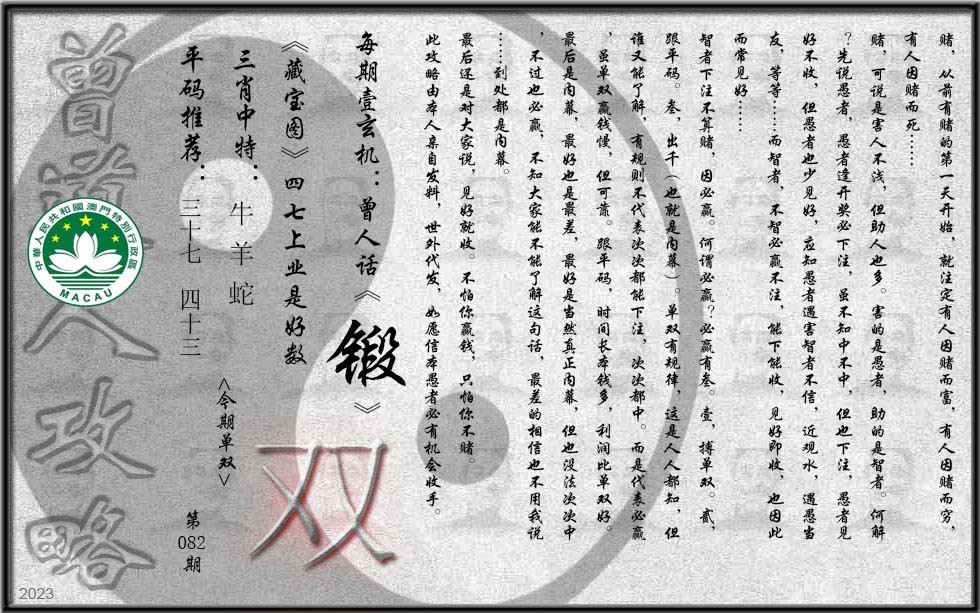 赌，从前有赌的第一天开始，就注定有人因赌而富，有人因赌而穷，
有人因赌而死……
赌，可说是害人不浅，但助人也多。害的是愚者，助的是智者。何解
？先说愚者，愚者逢开奖必下注，虽不知中不中，但也下注，愚者见
好不收，但愚者也少见好，应知愚者遇害智者不信，近观水，遇愚当
友，等等……而智者，不智必赢不注，能下能收，见好即收，也因此
而常见好……
智者下注不算赌，因必赢。何谓必赢？必赢有叁。壹，搏单双。贰，
跟平码。叁，出千（也就是内幕）。单双有规律，这是人人都知，但
谁又能了解，有规则不代表次次都能下注，次次都中。而是代表必赢
，虽单双赢钱慢，但可靠。跟平码，时间长本钱多，利润比单双好。
最后是内幕，最好也是最差，最好是当然真正内幕，但也没法次次中
，不过也必赢，不知大家能不能了解这句话，最差的相信也不用我说
……到处都是内幕。
最后还是对大家说，见好就收。不怕你赢钱，只怕你不赌。
此攻略由本人亲自发料，世外代发，如愿信本愚者必有机会收手。
每期壹玄机：曾人话《锻》
《藏宝图》四七上业是好数
三肖中特：牛 羊 蛇
平码推荐：三十七 四十三
<今期单双>
双
第
082
期
曾道人攻略
中華人民共和國澳門特別行政區
MACAU
2023